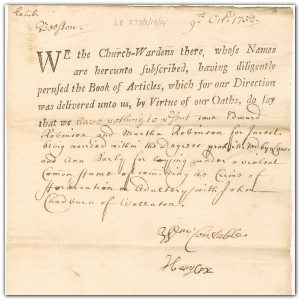 Beeston.
9th Octr 1732.
WE the Church-Wardens there, whose Names
are hereunto subscribed, having diligently
perused the Book of Articles, which for our Direction
was delivered unto us, by Virtue of our Oaths, do say
that we have nothing to Edward
Robinson and Martha Robinson for Incest
being married within the Degrees prohibited by Law
and Ann Barby for lying under a violent
Comon Fame of comitting the Crime of
Fornication or Adultery with John
Chadburn of Wollaton.
Wm: Constable.
Hen: Cox